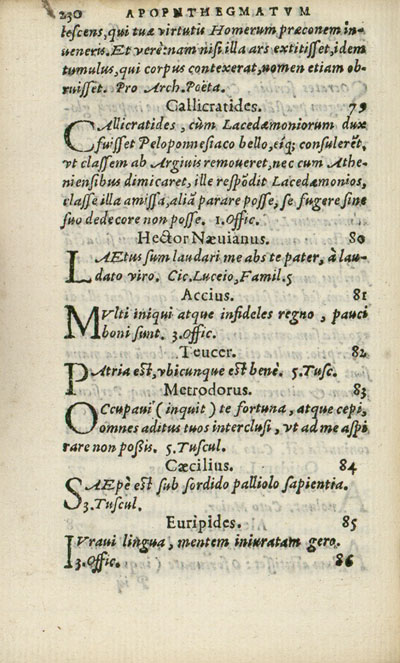 230 APOPHTHEGMATVM
lescens, qui tuæ virtutis Homerum præconem in-
ueneris. Et verè: nam nisi illa ars extitisset, idem
tumulus, qui corpus contexerat, nomen etiam ob-
ruisset. Pro Arch. Poëta.
Callicratides. 79
CAllicratides, cùm Lacedæmoniorum dux
fuisset Peloponnesiaco bello, eiq; consulerẽt,
vt classem ab Argiuis remoueret, nec cum Athe-
niensibus dimicaret, ille respõdit Lacedæmonios,
classe illa amissa, aliã parare posse, se fugere sine
suo dedecore non posse. 1. Offic.
Hector Næuianus. 80
LAEtus sum laudari me abs te pater, à lau-
dato viro. Cic. Luceio, Famil. 5
Accius. 81
MVlti iniqui atque infideles regno, pauci
boni sunt. 3. Offic.
Teucer. 82
PAtria est, vbicunque est benè. 5. Tusc.
Metrodorus. 83
OCcupaui (inquit) te fortuna, atque cepi,
omnes aditus tuos interclusi, vt ad me aspi
rare non possis. 5. Tuscul.
Cæcilius. 84
SAEpè est sub sordido palliolo sapientia.
3. Tuscul.
Euripides. 85
IVraui lingua, mentem iniuratam gero.
3. Offic. 86